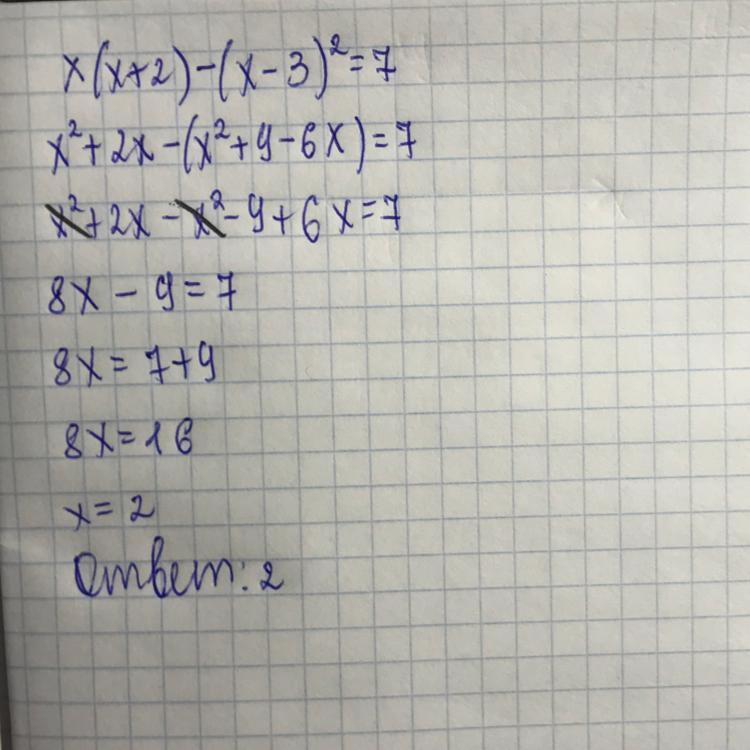 x(x+2)-(x-3)²=7
x²+2x-(x²+9-6x)=7
x²+2x-x²-9+6x=7
8x-9=7
8x=7+9
8x=16
x=2
Ответ: 2